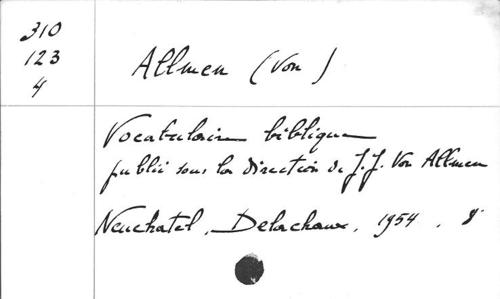 310
123
4
Allmen (Von)
Vocabulaire biblique
publié sous la direction de J.J. Von Allmen
Neuchatel, Delachaux, 1954. 8°